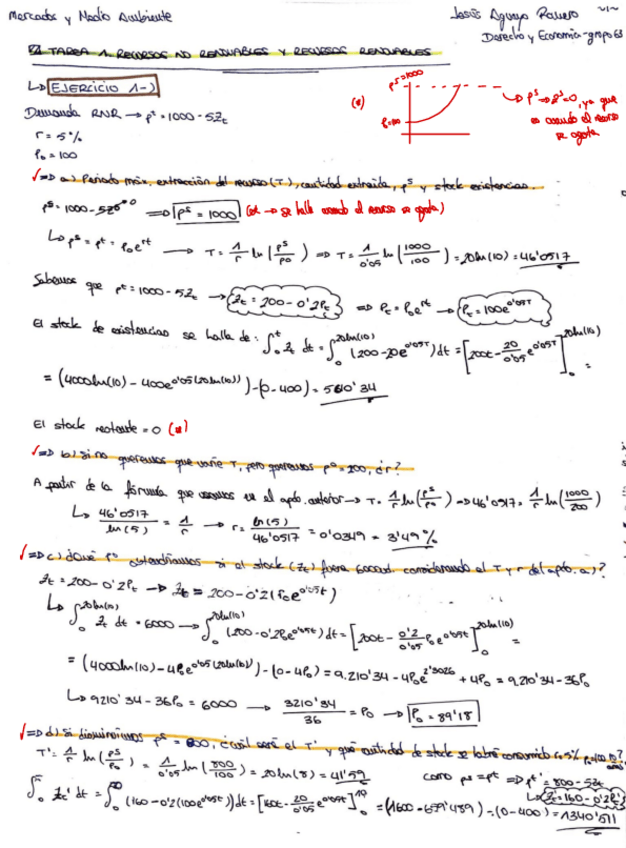 Mercados y Medio Ambiente
Jesús Aguayo Romero
Derecho y Economía-grupo 63
TAREA 1. RECURSOS NO RENOVABLES Y RECURSOS RENOVABLES
↳ EJERCICIO 1-)
Demanda RNR → pᵗ = 1000 - 5Zt
r = 5%
P₀ = 100
(*) pˢ=1000 P₀=100 → pˢ → Zˢ=0, ya que es cuando el recurso se agota
⇒ a) Periodo máx. extracción del recurso (T), cantidad extraída, pˢ y stock existencias.
pˢ = 1000 - 5Zˢ⁼⁰ ⇒ pˢ = 1000 (* → se halla cuando el recurso se agota)
↳ pˢ = pᵗ = P₀eʳᵗ → T = 1/r ln (pˢ/P₀) ⇒ T = 1/0'05 ln (1000/100) = 20ln(10) = 46'0517
Sabemos que pᵗ = 1000 - 5Zt → Zt = 200 - 0'2Pt ⇒ Pt = P₀eʳᵗ → Pt = 100e^0'05T
El stock de existencias se halla de: ∫₀ᵗ Zt dt = ∫₀^20ln(10) (200 - 20e^0'05T) dt = [200t - 20/0'05 e^0'05T]₀^20ln(10) =
= (4000ln(10) - 400e^0'05(20ln(10))) - (0 - 400) = 5610'34
El stock restante = 0 (*)
⇒ b) Si no queremos que varíe T, pero queremos P₀ = 200, ¿r?
A partir de la fórmula que usamos en el apdo. anterior → T = 1/r ln (pˢ/P₀) → 46'0517 = 1/r ln (1000/200)
↳ 46'0517/ln(5) = 1/r → r = ln(5)/46'0517 = 0'0349 = 3'49%
⇒ c) ¿Qué P₀ obtendríamos si el stock (Zt) fuera 6000ud considerando el T y r del apdo. a)?
Zt = 200 - 0'2Pt → Zt = 200 - 0'2(P₀e^0'05t)
↳ ∫₀^20ln(10) Zt dt = 6000 → ∫₀^20ln(10) (200 - 0'2P₀e^0'05t) dt = [200t - 0'2/0'05 P₀e^0'05t]₀^20ln(10) =
= (4000ln(10) - 4P₀e^0'05(20ln(10))) - (0 - 4P₀) = 9.210'34 - 4P₀e^2'3026 + 4P₀ = 9.210'34 - 36P₀
↳ 9210'34 - 36P₀ = 6000 → 3210'34/36 = P₀ → P₀ = 89'18
⇒ d) Si disminuimos pˢ = 800, ¿cuál será el T' y qué cantidad de stock se habrá consumido
T' = 1/r ln (pˢ/P₀) = 1/0'05 ln (800/100) = 20ln(8) = 41'59
como pˢ = pᵗ ⇒ pᵗ' = 800 - 5Zt
↳ Zt' = 160 - 0'2Pt'
Zt' dt = (160 - 0'2(100e^0'05t)) dt = [160t - 20/0'05 e^0'05t]₀^10 = (1600 - 659'489) - (0 - 400) = 1340'511